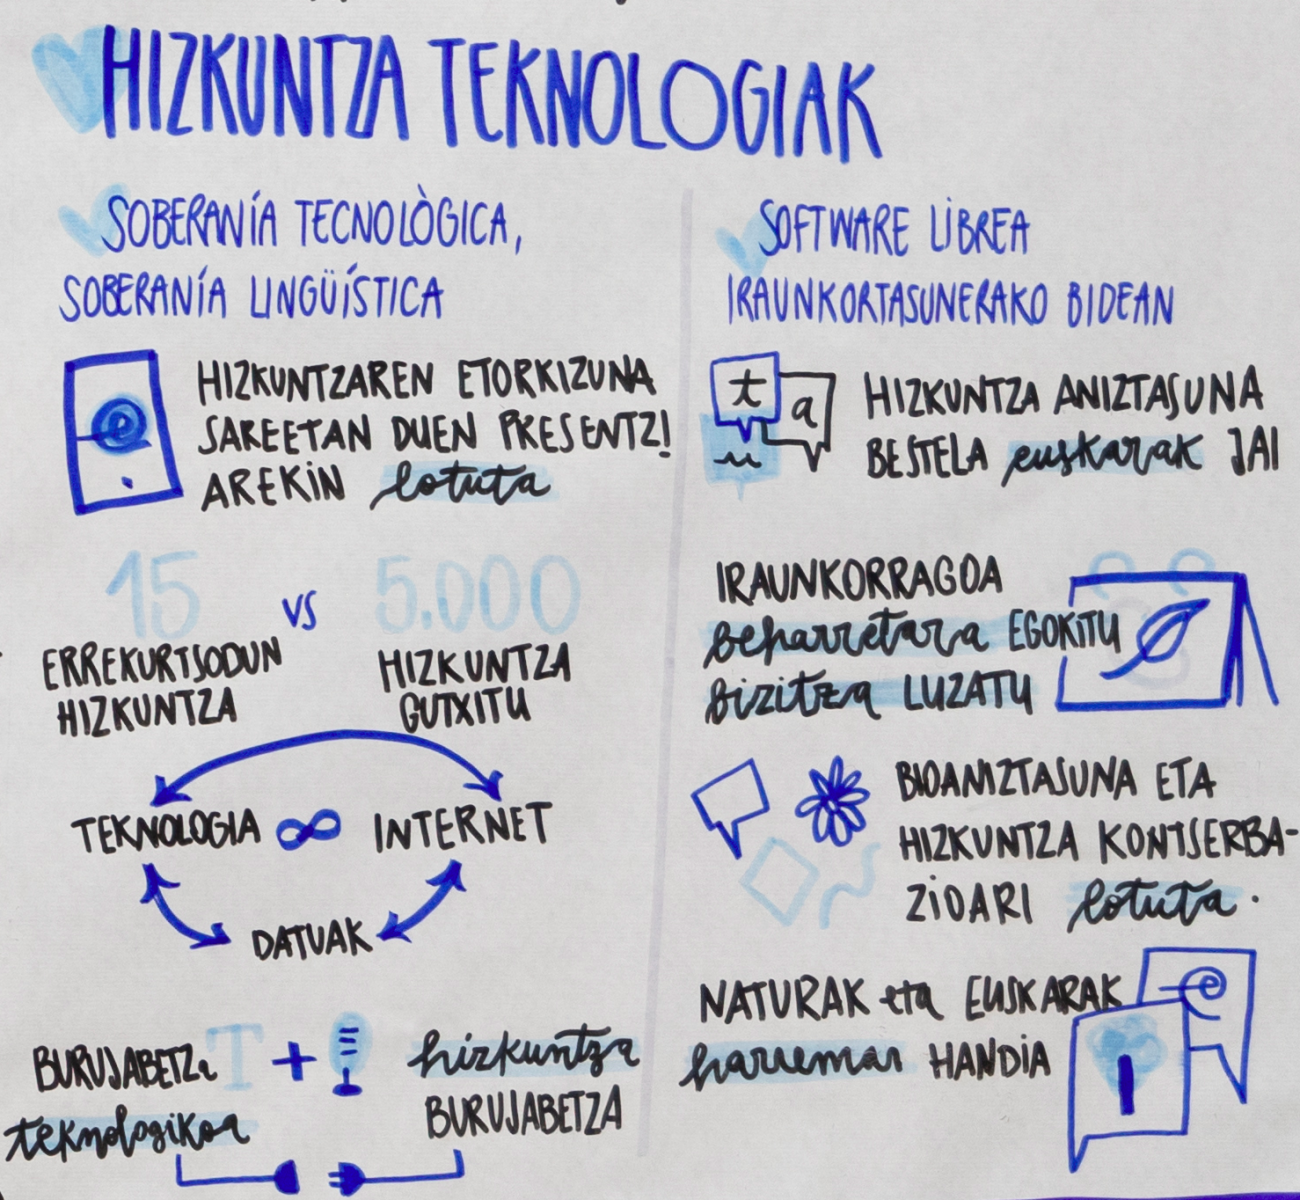 HIZKUNTZA TEKNOLOGIAK
SOBERANÍA TECNOLÒGICA,
SOBERANÍA LINGÜÍSTICA
HIZKUNTZAREN ETORKIZUNA
SAREETAN DUEN PRESENTZI
AREKIN lotuta
15 vs 5.000
ERREKURTSODUN
HIZKUNTZA
HIZKUNTZA
GUTXITU
TEKNOLOGIA ∞ INTERNET
DATUAK
BURUJABETZa
teknologikoa
T +
hizkuntza
BURUJABETZA
SOFTWARE LIBREA
IRAUNKORTASUNERAKO BIDEAN
t a
HIZKUNTZA ANIZTASUNA
BESTELA euskarak JAI
IRAUNKORRAGOA
beharretara EGOKITU
bizitza LUZATU
BIOANIZTASUNA ETA
HIZKUNTZA KONTSERBA-
ZIOARI lotuta.
NATURAK eta EUSKARAK
harreman HANDIA